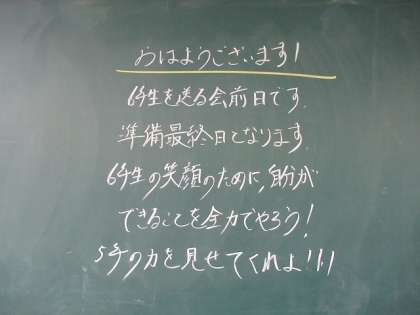 おはようございます!
6年生を送る会前日です.
準備最終日となります.
6年生の笑顔のために,自分が
できることを全力でやろう!
5年の力を見せてくれよ!!!